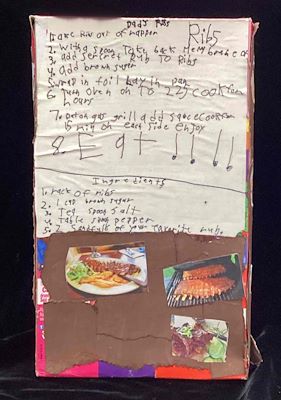 Dad's Ribs
Ribs
1. take Ribs out of rapper
2. with a spoon Take back
3. add sercret Rub To Ribs
4. add brown suger
5. wrap in foil Lay in pan
6. Turn oven on To 225 cook
hours
7. Then on gas grill add sauce cook for
5 min on each side enjoy
8. Eat !!!!
Ingredients
1. rack of ribs
2. 1 cup brown sugar
3. Tea spoon salt
4. Table spoon pepper
5. 2 of your favorite rub.